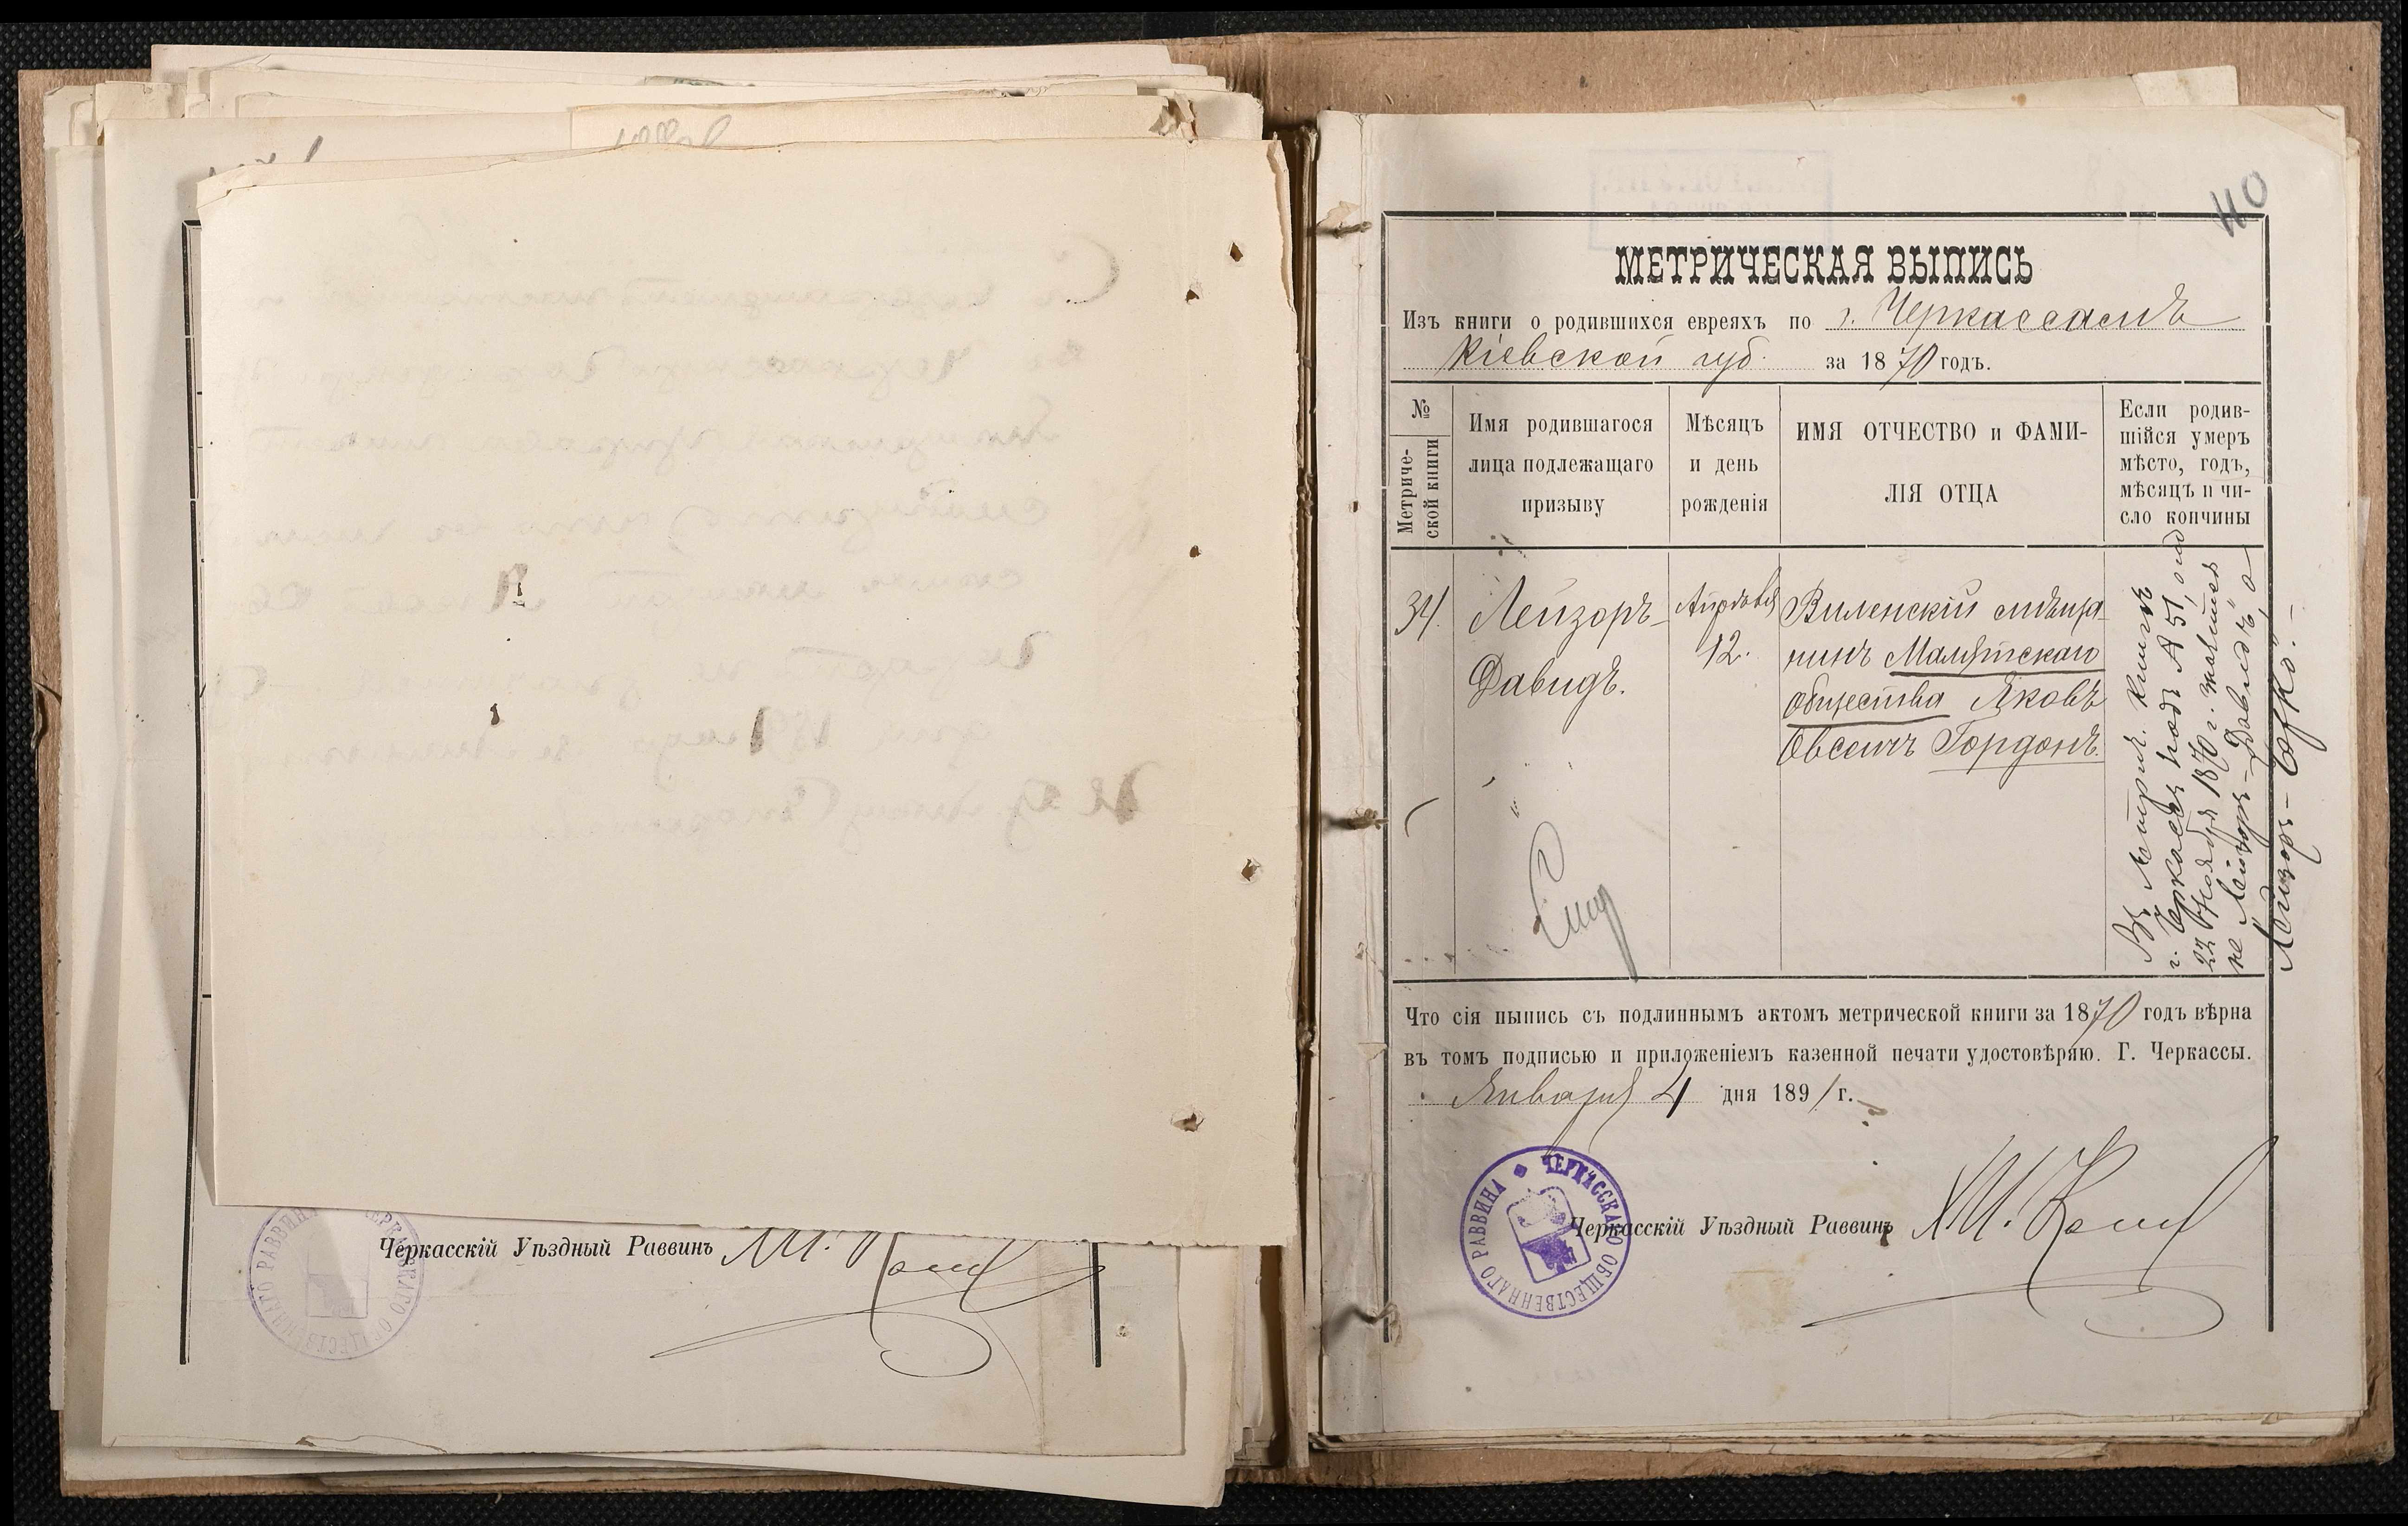 Черкасскій Уѣздный Раввинъ
40
МЕТРИЧЕСКАЯ ВЫПИСЬ
Изъ книги о родившихся евреяхъ по г. Черкассамъ
Кіевской губ. за 1870 годъ.
№
Метриче-
ской книги
Имя родившагося
лица подлежащаго
призыву
Мѣсяцъ
и день
рожденія
ИМЯ ОТЧЕСТВО и ФАМИ-
ЛІЯ ОТЦА
Если родив-
шійся умеръ
мѣсто, годъ,
мѣсяцъ и чи-
сло кончины
34.
Лейзоръ-
Давидъ.
Апрѣля
12.
Виленскій мѣща-
нинъ Малятскаго
общества Яковъ
Овсеичъ Гордонъ.
Въ Метрич. книгѣ
г. Черкассъ подъ № 51, отъ
22 Ноября 1870 г.
не Лейзоръ-Давидъ, а
Лейзоръ-
Что сія выпись съ подлиннымъ актомъ метрической книги за 1870 годъ вѣрна
въ томъ подписью и приложеніемъ казенной печати удостовѣряю. Г. Черкассы.
Января 4 дня 1891 г.
ЧЕРКАССКАГО ОБЩЕСТВЕННАГО РАВВИНА
Черкасскій Уѣздный Раввинъ